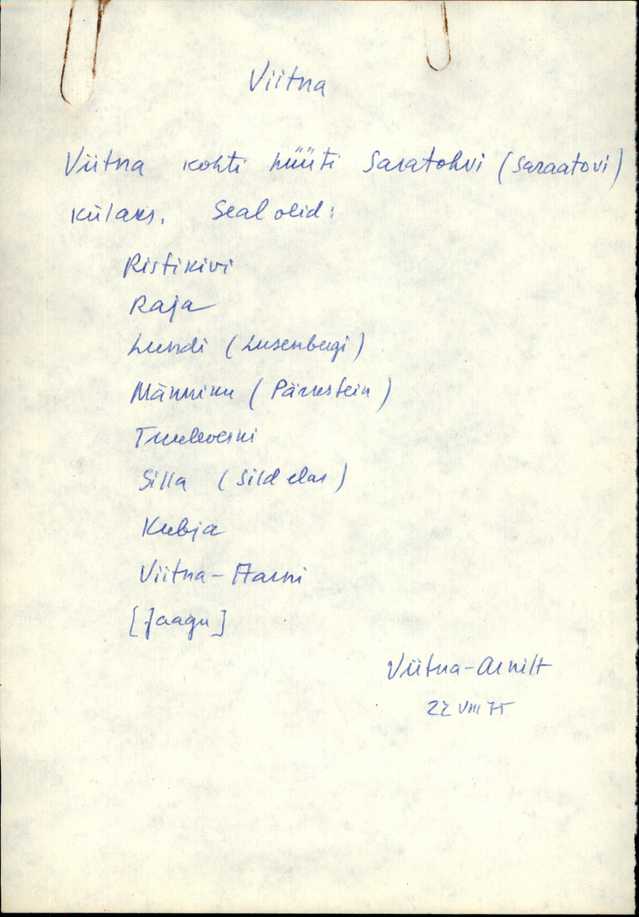 Viitna
Viitna kohti hüüti Saratohvi (Saraatovi)
külaks. Seal olid:
Ristikivi
Raja
Lundi (Lusenbergi)
Männiku (Pärnstein)
Tuuleveski
Silla (Sild elas)
Kubja
Viitna-Aarni
[Jaagu]
Viitna-Arnilt
22 VIII 75